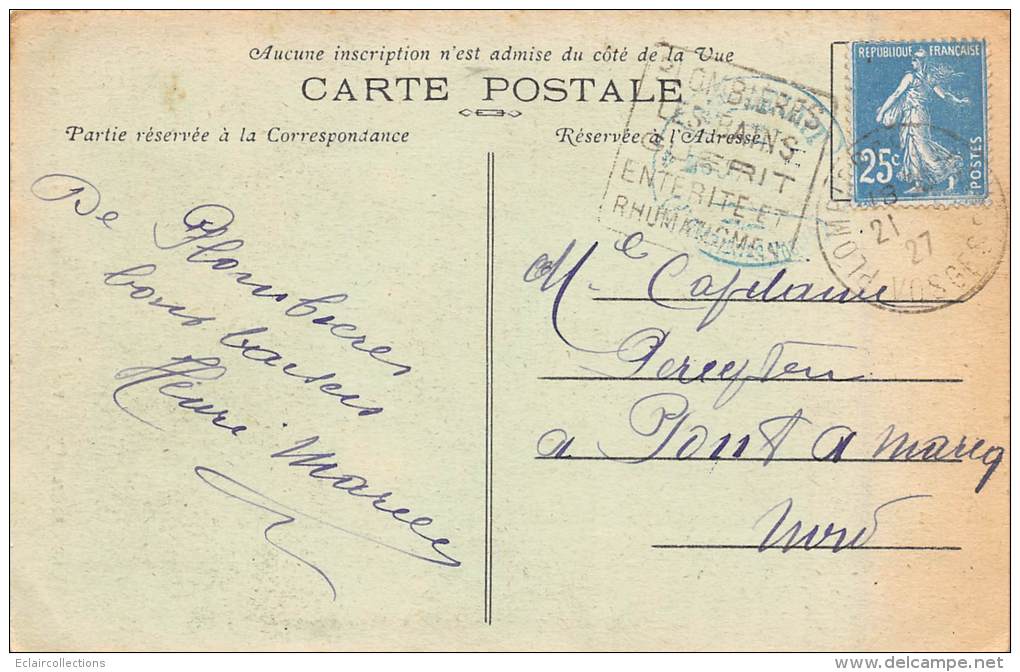 Aucune inscription n'est admise du côté de la Vue
CARTE POSTALE
Partie réservée à la Correspondance
Réservée à l'Adresse
De Plombieres
bons baisers
Marcel
PLOMBIÈRES
LES BAINS
GUERIT
ENTERITE ET
RHUMATISME
REPUBLIQUE FRANÇAISE
25c
POSTES
PLOMBIERES
21
27
VOSGES
Me Capelaine
a Pont a Marcq
Nord
Eclaircollections
www.delcampe.net